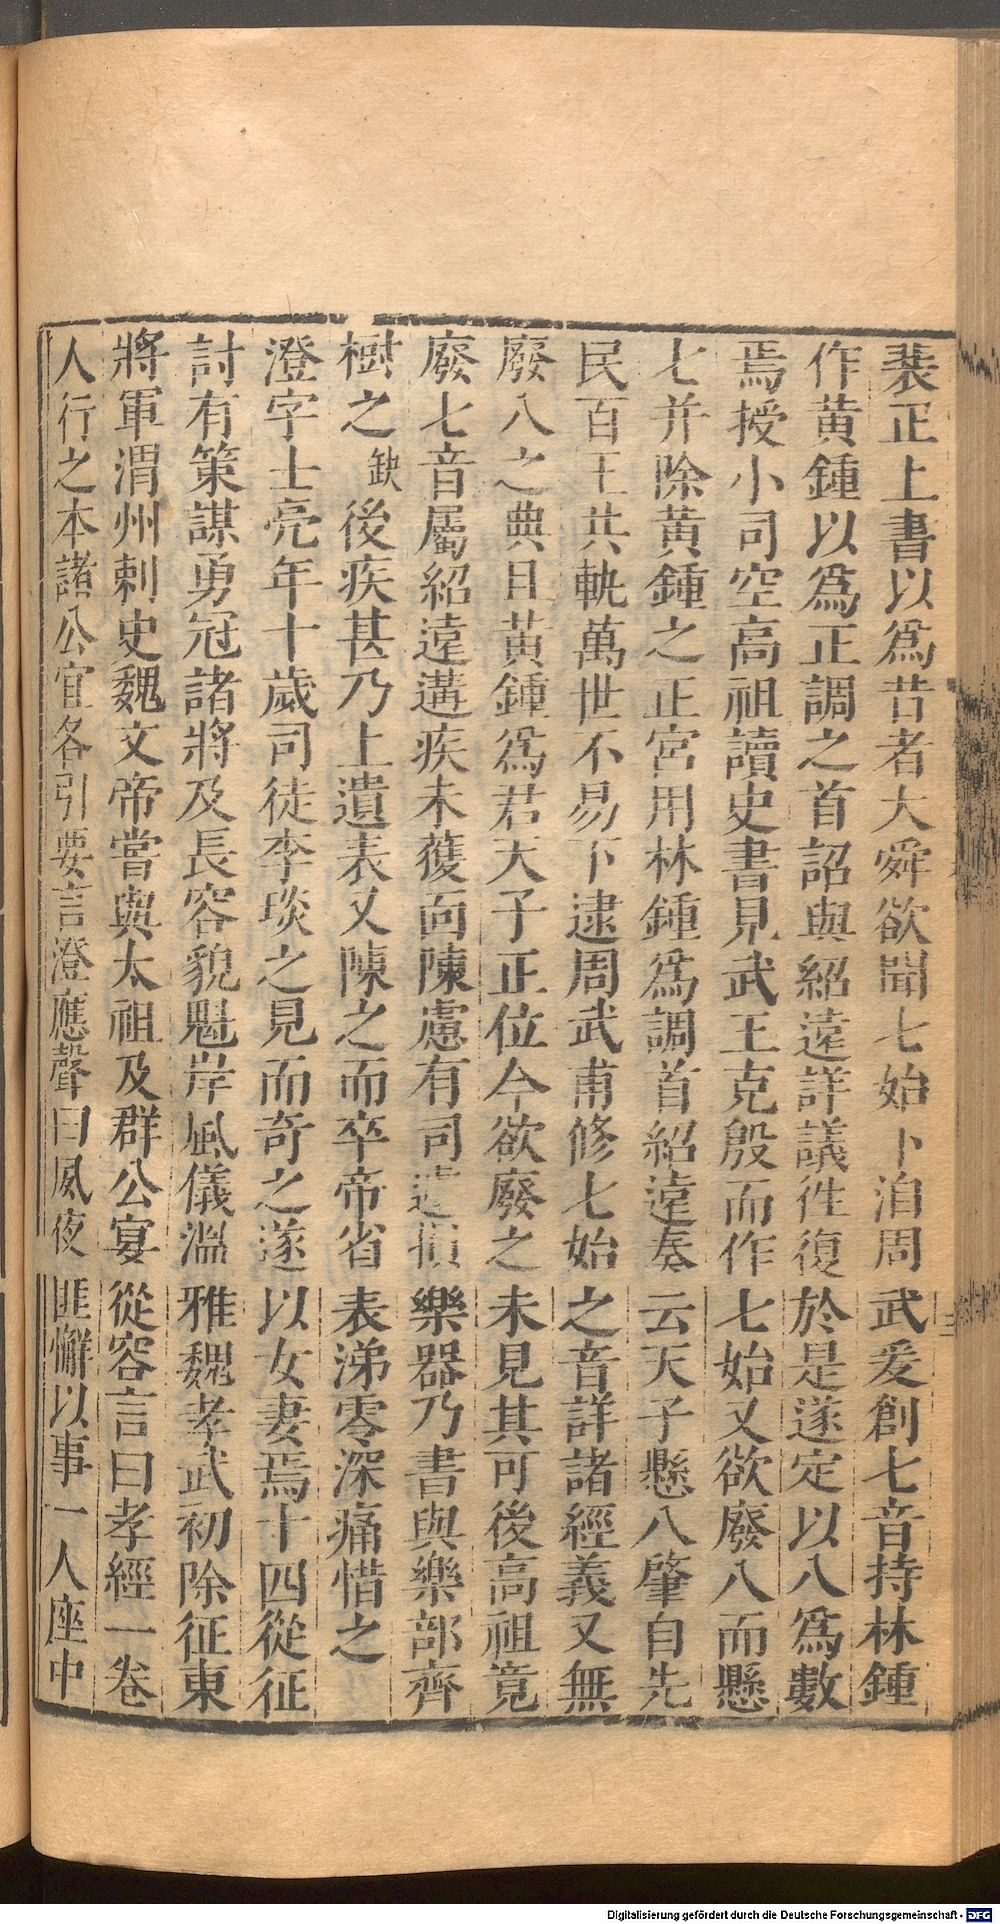 裴正上書以爲昔者大舜欲聞七始下洎周武爰創七音持林鍾
作黃鍾以爲正調之首詔與紹遠詳議徃復於是遂定以八爲數
焉授小司空高祖讀史書見武王克殷而作七始又欲廢八而懸
七并除黃鍾之正宮用林鍾爲調首紹遠奏云天子懸八肇自先
民百王共軌萬世不易下逮周武甫修七始之音詳諸經義又無
廢八之典且黃鍾爲君天子正位今欲廢之未見其可後高祖竟
廢七音屬紹遠遘疾未獲面陳慮有司遽損樂器乃書與樂部齊
樹之缺後疾甚乃上遺表又陳之而卒帝省表涕零深痛惜之
澄字士亮年十歲司徒李琰之見而奇之遂以女妻焉十四從征
討有策謀勇冠諸將及長容貌魁岸風儀溫雅魏孝武初除征東
將軍渭州刺史魏文帝嘗與太祖及群公宴從容言曰孝經一卷
人行之本諸公宜各引要言澄應聲曰夙夜匪懈以事一人座中
Digitalisierung gefördert durch die Deutsche Forschungsgemeinschaft - DFG